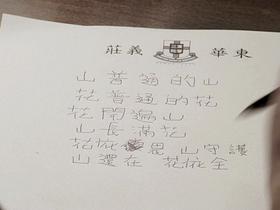 東華義莊
山普通的山
花普通的花
花開遍山
山長滿花
花依 山守護
山還在 花依全